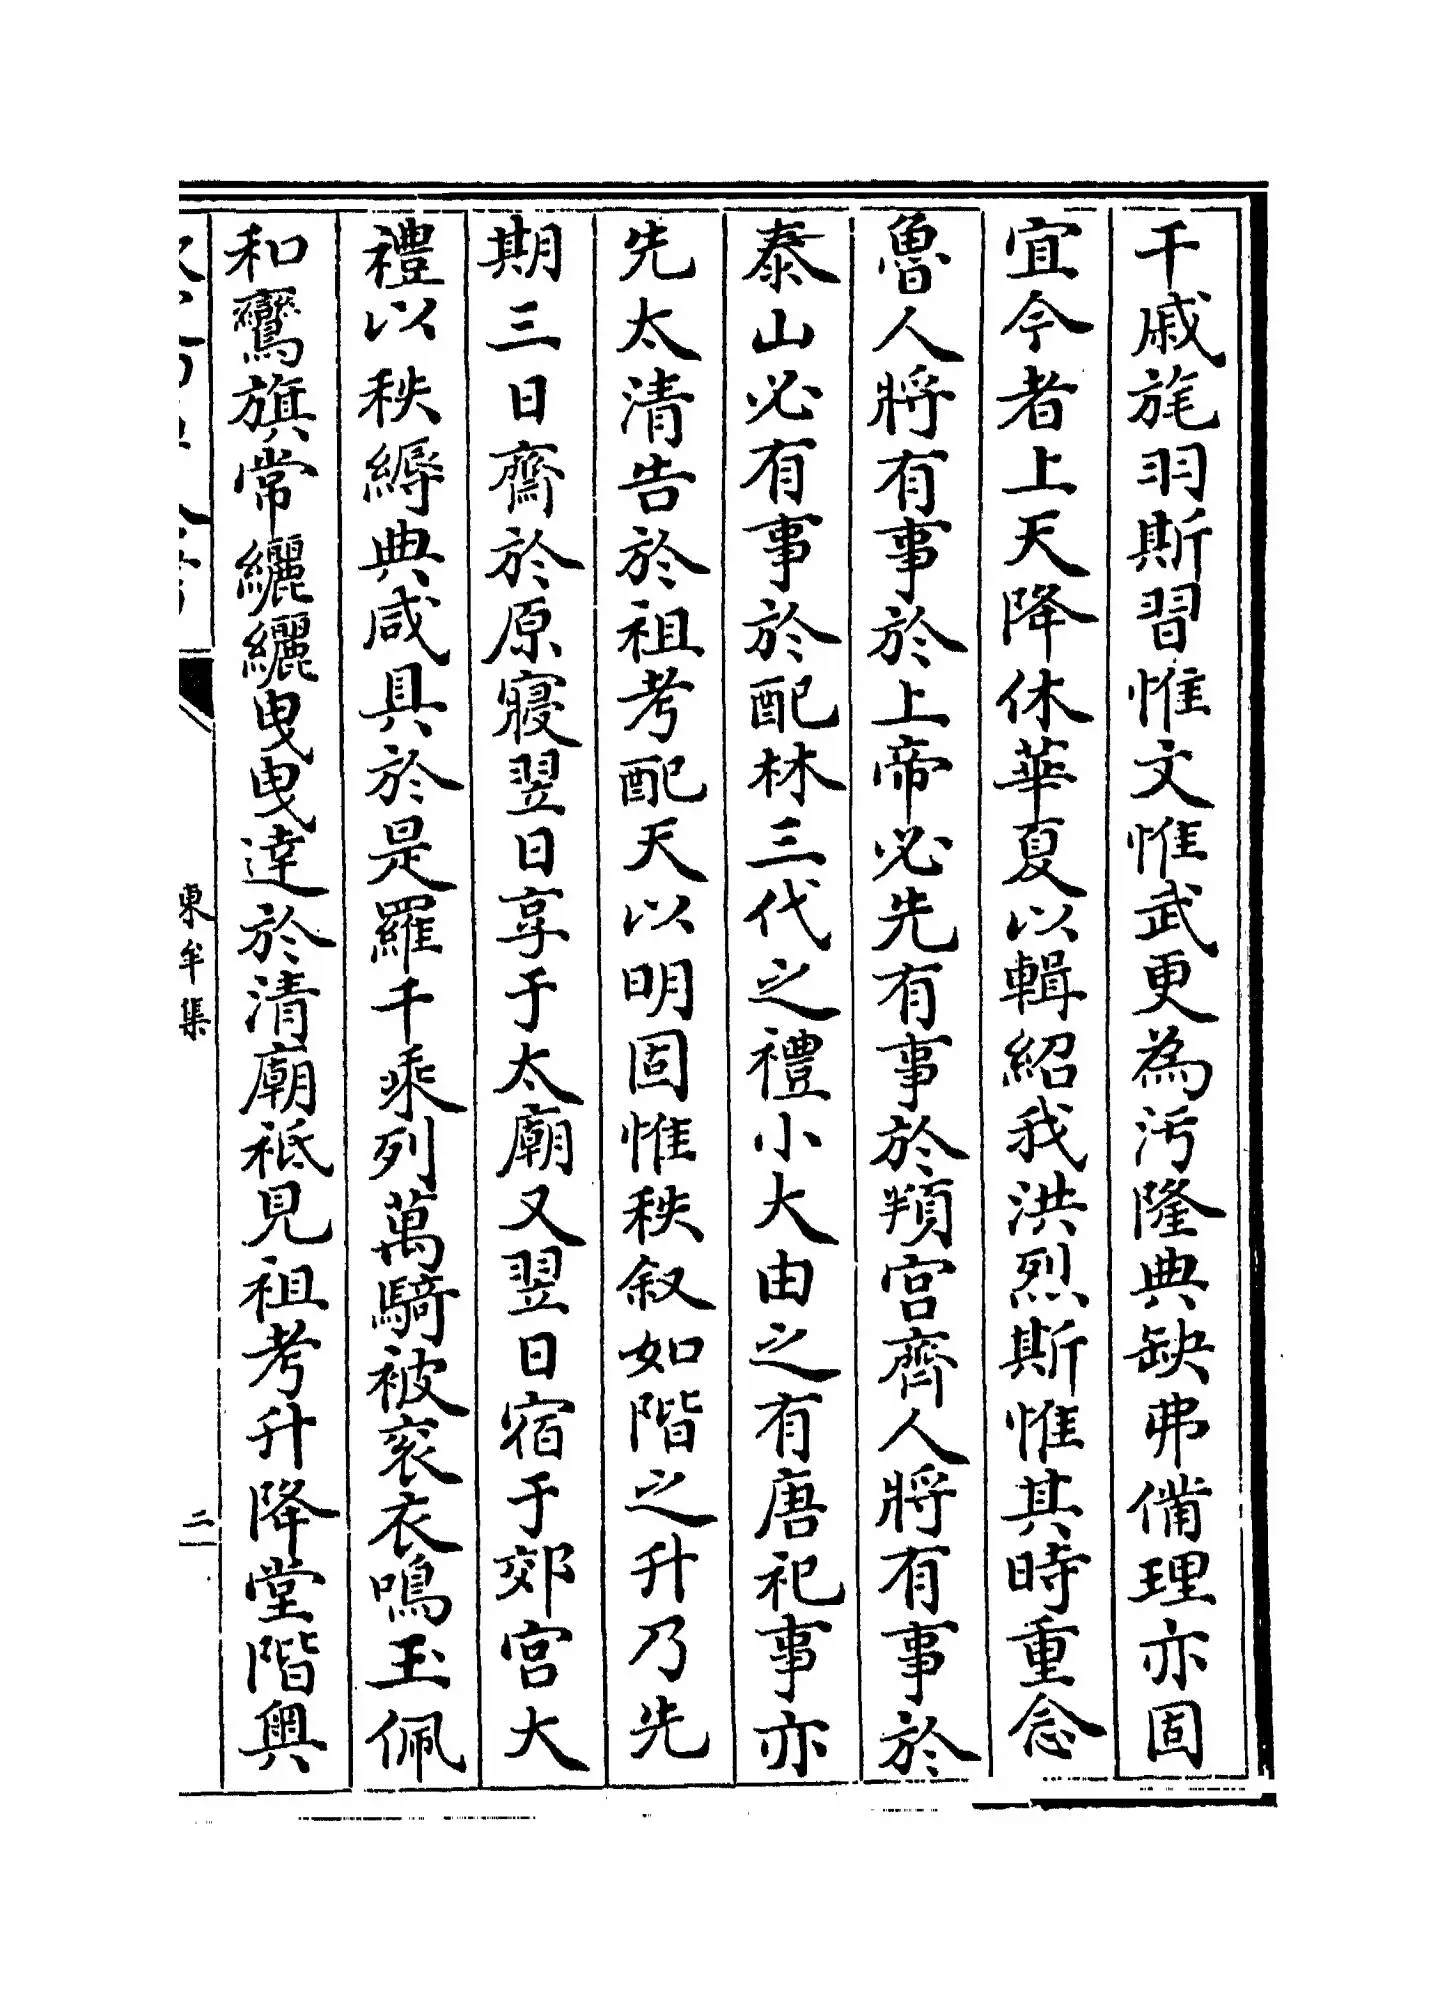 干戚旄羽斯習惟文惟武更為汚隆典缺弗備理亦固
宜今者上天降休華夏以輯紹我洪烈斯惟其時重念
魯人將有事於上帝必先有事於頖宫齊人將有事於
泰山必有事於配林三代之禮小大由之有唐祀事亦
先太清告於祖考配天以明固惟秩叙如階之升乃先
期三日齋於原寢翌日享于太廟又翌日宿于郊宫大
禮以秩縟典咸具於是羅千乘列萬騎被衮衣鳴玉佩
和鸞旗常纚纚曳曳達於清廟祗見祖考升降堂階興
東牟集
二